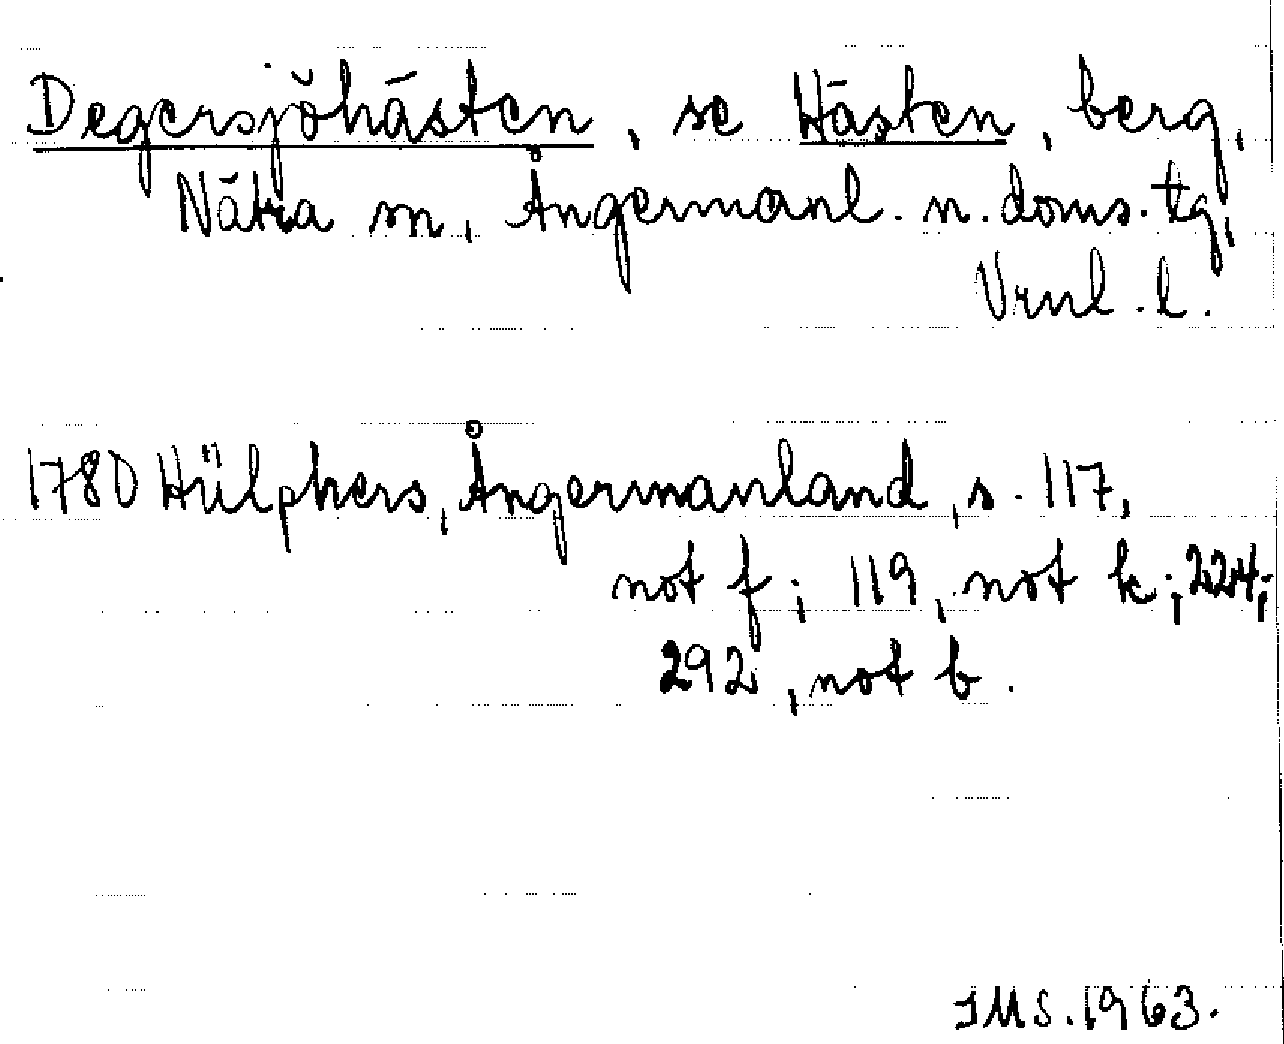 Degersjöhästen, se Hästen, berg,
Nätra sn, Ångermanl. n. doms. tg,
Vrnl. l.
1780 Hülphers, Ångermanland, s. 117,
not f; 119, not k; 224;
292, not b.
IMS. 1963.